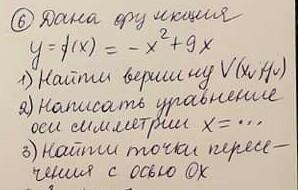 ⑥ Дана функция
y = f(x) = -x² + 9x
1) Найти вершину V(xᵥ; yᵥ)
2) Написать уравнение
оси симметрии x = ...
3) Найти точки пересе-
чения с осью Ox